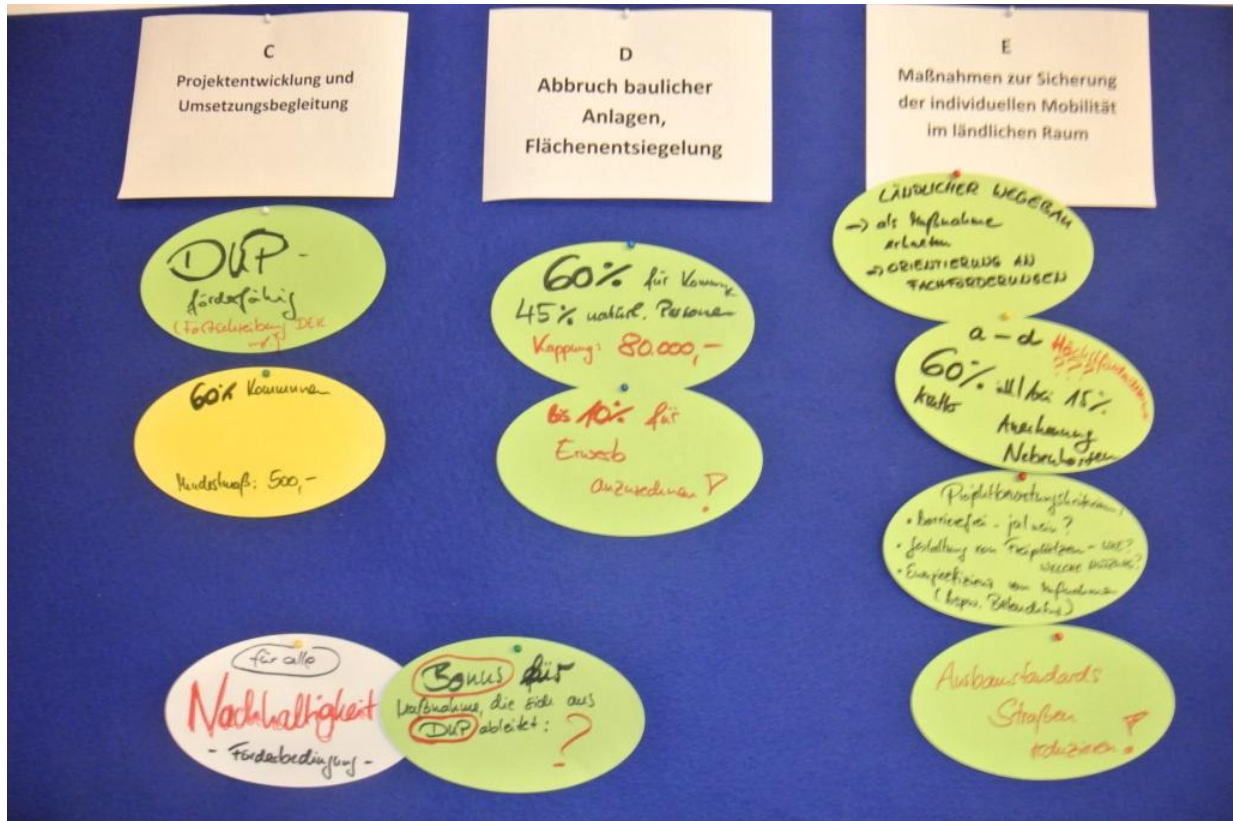 C
Projektentwicklung und
Umsetzungsbegleitung
DKP -
förderfähig
(Fortschreibung DEK
60% Kommunen
Mindestmaß: 500,-
für alle
Nachhaltigkeit
- Förderbedingung -
Bonus für
Maßnahme, die sich aus
DKP ableitet:
?
D
Abbruch baulicher
Anlagen,
Flächenentsiegelung
60% für Kommune
45% natürl. Personen
Kappung: 80.000,-
bis 10% für
Erwerb
anzurechnen!
E
Maßnahmen zur Sicherung
der individuellen Mobilität
im ländlichen Raum
LÄNDLICHER WEGEBAU
-> als Maßnahme
erhalten
-> ORIENTIERUNG AN
FACHFÖRDERUNGEN
a - d
???
60% bei 15%
Anrechnung
Nebenkosten
Projektbewertungskriterien!
• barrierefrei - ja/nein?
• Gestaltung von Freiplätzen - WIE?
WELCHE
• Energieeffizienz von Maßnahmen
(bspw. Beleuchtung)
Ausbaustandards
Straßen
reduzieren!